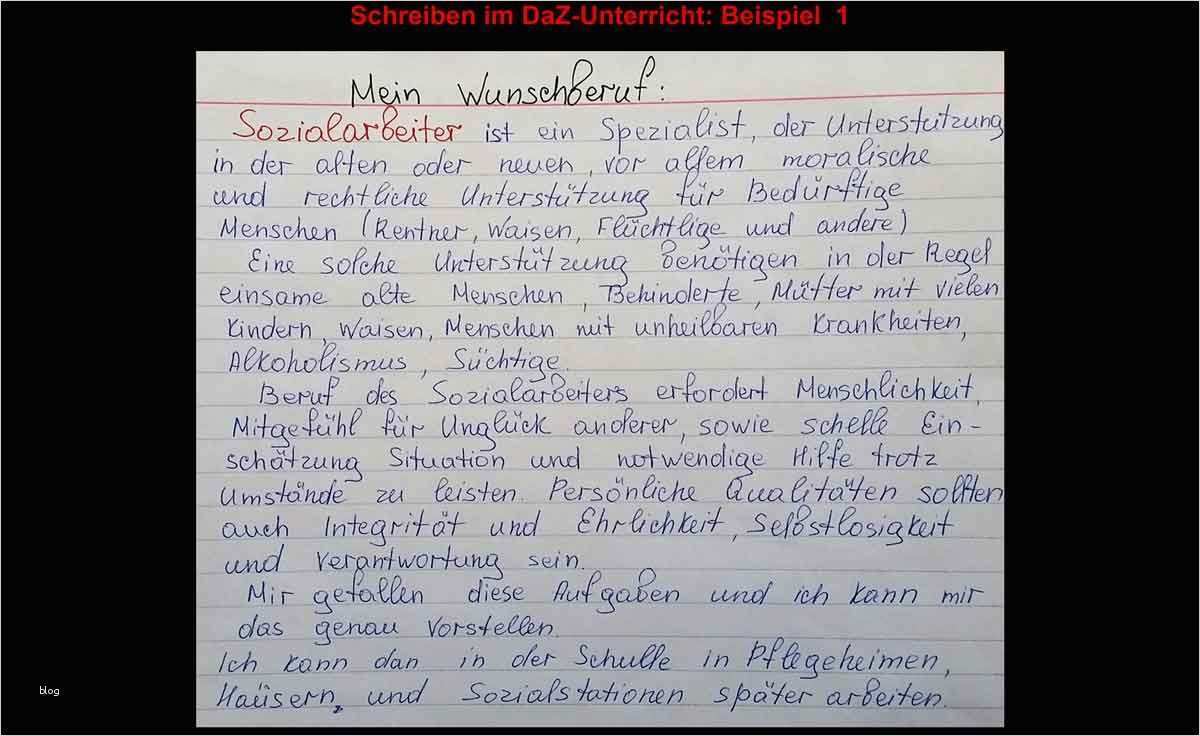 Schreiben im DaZ-Unterricht: Beispiel 1
Mein Wunschberuf:
Sozialarbeiter ist ein Spezialist, der Unterstützung
in der alten oder neuen, vor allem moralische
und rechtliche Unterstützung für Bedürftige
Menschen (Rentner, Waisen, Flüchtlige und andere)
Eine solche Unterstützung benötigen in der Regel
einsame alte Menschen, Behinderte, Mütter mit vielen
Kindern, Waisen, Menschen mit unheilbaren Krankheiten,
Alkoholismus, Süchtige.
Beruf des Sozialarbeiters erfordert Menschlichkeit,
Mitgefühl für Unglück anderer, sowie schelle Ein-
schätzung Situation und notwendige Hilfe trotz
Umstände zu leisten. Persönliche Qualitäten sollten
auch Integrität und Ehrlichkeit, Selbstlosigkeit
und Verantwortung sein.
Mir gefallen diese Aufgaben und ich kann mir
das genau vorstellen.
Ich kann dan in der Schulle in Pflegeheimen,
Haüsern, und Sozialstationen später arbeiten.
blog